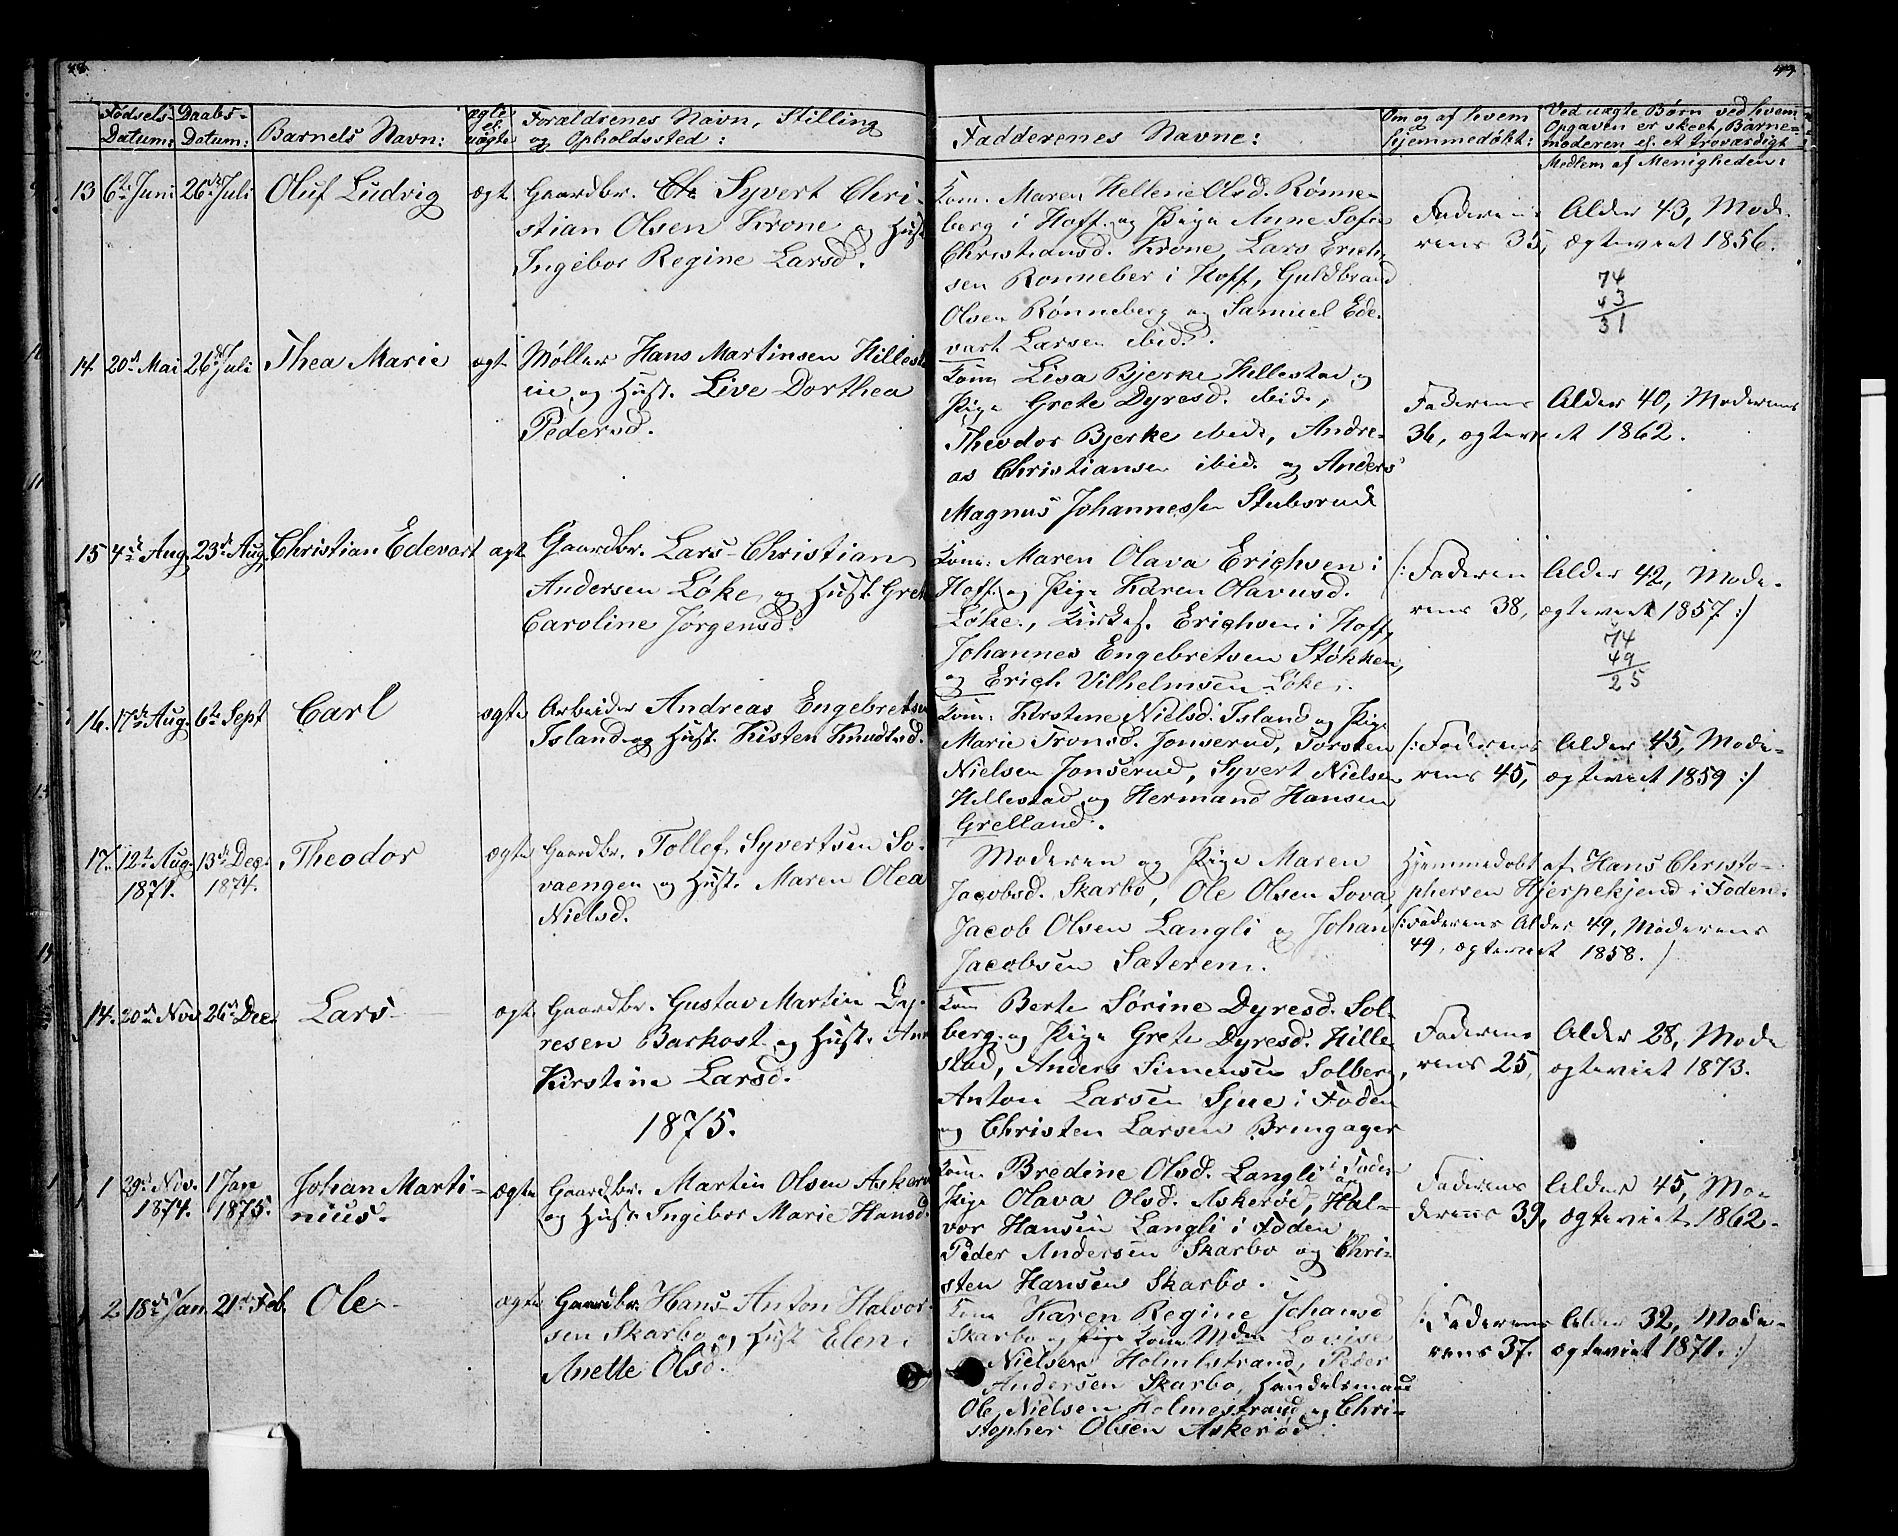 49
Fødsels-
Datum:
Daabs-
Datum:
Barnets Navn:
ægte
el.
uægte
Forældrenes Navn, Stilling
og Opholdssted:
Fadderenes Navne:
Om og af hvem
hjemmedøbt:
Ved uægte Børn ved hvem
Opgaven er skeet, Barne-
moderen el. et troværdigt
Medlem af Menigheden:
13 6te Juni 26de Juli Oluf Ludvig ægt.
Gaardbr. Syvert Chri-
stian Olsen Krone og Hust.
Ingebor Regine Larsd.
Kom. Maren Hellene Olsd. Rønne-
berg i Hoff og Pige Anne Sofie
Christiansd. Krone, Lars Erich-
sen Ronneber i Hoff, Guldbrand
Olsen Rønneberg og Samuel Ede-
vart Larsen ibid.
Faderens Alder 43, Mode-
rens 35, ægteviet 1856.
74
43
31
14. 20de Mai 26de Juli Thea Marie ægt.
Møller Hans Martinsen Hillest
og Hust. Live Dorthea
Pedersd.
Kom. Lisa Bjerke Hellestad og
Pige Grete Dyresd. ibid.,
Theodor Bjerke ibid., Andre-
as Christiansen ibid. og Anders
Magnus Johannessen Stubsrud
Faderens Alder 40, Moderens
36, ægteviet 1862.
15 4de Aug. 23de Aug. Christian Edevart ægt.
Gaardbr. Lars Christian
Andersen Løke og Hust. Grete
Caroline Jørgensd.
Kom: Maren Olava Erichsen i
Hoff og Pige Karen Olavusd.
Løke, Kirkes. Erichsen i Hoff,
Johannes Engebretsen Støkken,
og Erich Vilhelmsen Løke.
/: Faderens Alder 42, Mode-
rens 38, ægteviet 1857 :/
74
49
25
16. 17de Aug. 6te Sept Carl ægte
Arbeider Andreas Engebretsen
Island og Hust. Kisten Knudtsd.
Kom: Kirstine Nielsd. Island og Pige
Marie Tronsd. Jonserud, Torsten
Nielsen Jonserud, Syvert Nielsen
Hillestad og Hermand Hansen
Grelland.
/: Faderens Alder 45, Mode-
rens 45, ægteviet 1859 :/
17. 12te Aug. 13de Dec. Theodor ægte
1871. 1874.
Gaardbr. Tollef Syvertsen So-
vaengen og Hust. Maren Olea
Nielsd.
Moderen og Pige Maren
Jacobsd. Skarbo, Ole Olsen Sova,
Jacob Olsen Langli og Johan
Jacobsen Sæterem.
Hjemmedøbt af Hans Christo-
phersen Hjerpekjend i Foden.
/: Faderens Alder 49, Moderens
49, ægteviet 1858. /
14. 20de Nov 26de Dec. Lars ægt.
Gaardbr. Gustav Martin Dy-
resen Backost og Hust. Anne
Kirstine Larsd.
Kom Berte Sørine Dyresd. Sol-
berg og Pige Grete Dyresd. Hille-
stad, Anders Simensen Solberg,
Anton Larsen Sjue i Foden
og Christen Larsen Bringager
Faderens Alder 28, Mode
rens 25, ægteviet 1873.
1875.
1 29de Nov. 1 Jan Johan Marti- ægte
1874. 1875. nius.
Gaardbr. Martin Olsen Askerød
og Hust. Ingebor Marie Hansd.
Kom. Bredine Olsd. Langli i Foden og
Pige Olava Olsd. Askerød, Hal-
vor Hansen Langli i Foden
Peder Andersen Skarbo og Chri-
sten Hansen Skarbo.
Faderens Alder 45, Mo-
derens 39, ægteviet 1862.
2 18de Jan. 21de Feb. Ole ægte
Gaardbr. Hans Anton Halvor-
sen Skarbo og Hust Elen
Anette Olsd.
Kom Karen Regine Johansd
Skarbo og Pige Kom Lovise
Nielsen Holmestrand, Peder
Andersen Skarbo, Handelsmand
Ole Nielsen Holmestrand og Chri-
stopher Olsen Askerød.
/: Faderens Alder 32, Mode-
rens 37. ægteviet 1871. :/